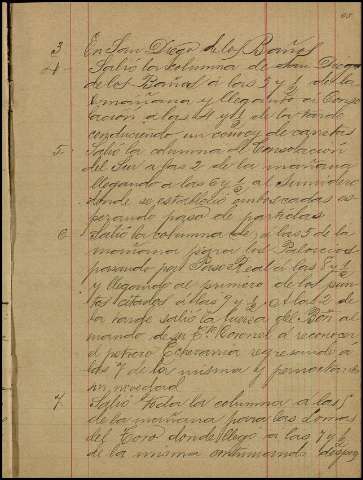 3 En San Diego de los Baños
4 Salió la columna de San Diego
de los Baños á las 3 y ½ de la
mañana y llegando a Conso
lación á las 4 y ½ de la tarde
conduciendo un convoy de carretas
5 Salió la columna de Consolación
del Sur a las 2 de la mañana
llegando a las 6 y ½ al
donde se estableció emboscadas es
perando paso de partidas
6 Salió la columna a las 5 de la
mañana para los Palacios
pasando por Paso Real á las 8 y ½
y llegando al primero de los pun
tos citados á las 9 y ½. A las 2 de
la tarde salió la fuerza del Bon al
mando de su Tte Coronel á reconocer
el potrero Echevarria regresando á
las 7 de la misma y pernoctando
sin novedad
7 Salió toda la columna a las 5
de la mañana para las Lomas
del Toro donde llegó a las 7 y ½
de la misma continuando